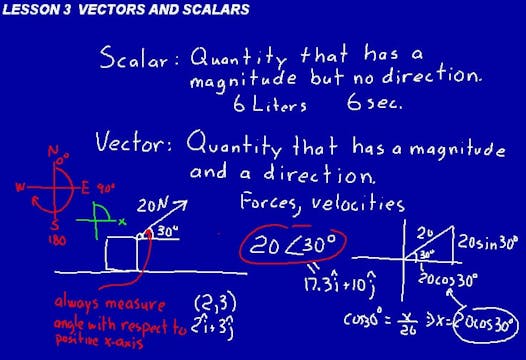 LESSON 3 VECTORS AND SCALARS
Scalar: Quantity that has a
magnitude but no direction.
6 Liters 6 sec.
Vector: Quantity that has a magnitude
and a direction.
Forces, velocities
N
0°
W
E 90°
S
180
x
20N
30°
20∠30°
=
17.3î+10ĵ
20
30°
20sin30°
20cos30°
cos30° = x/20 ⇒ x=20cos30°
always measure
angle with respect to
positive x-axis
(2,3)
2î+3ĵ